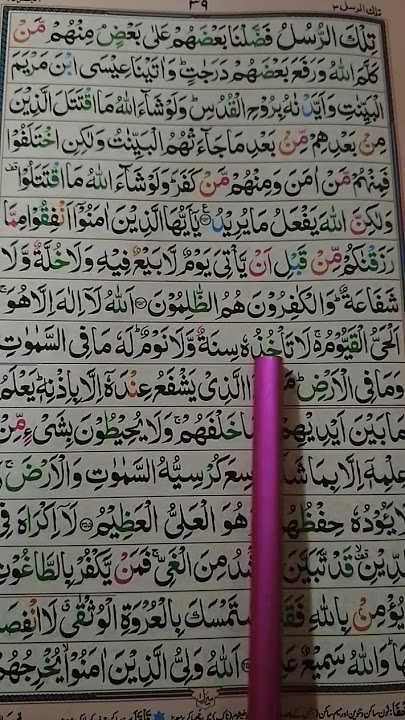 تلك الرسل ٣
٣٩
تِلْكَ الرُّسُلُ فَضَّلْنَا بَعْضَهُمْ عَلٰى بَعْضٍ مِنْهُمْ مَّنْ
كَلَّمَ اللّٰهُ وَرَفَعَ بَعْضَهُمْ دَرَجٰتٍ وَاٰتَيْنَا عِيْسَى ابْنَ مَرْيَمَ
الْبَيِّنٰتِ وَاَيَّدْنٰهُ بِرُوْحِ الْقُدُسِ وَلَوْ شَآءَ اللّٰهُ مَا اقْتَتَلَ الَّذِيْنَ
مِنْ بَعْدِهِمْ مِّنْ بَعْدِ مَا جَآءَتْهُمُ الْبَيِّنٰتُ وَلٰكِنِ اخْتَلَفُوْا
فَمِنْهُمْ مَّنْ اٰمَنَ وَمِنْهُمْ مَّنْ كَفَرَ وَلَوْ شَآءَ اللّٰهُ مَا اقْتَتَلُوْا
وَلٰكِنَّ اللّٰهَ يَفْعَلُ مَا يُرِيْدُ يٰٓاَيُّهَا الَّذِيْنَ اٰمَنُوْٓا اَنْفِقُوْا مِمَّا
رَزَقْنٰكُمْ مِّنْ قَبْلِ اَنْ يَّاْتِيَ يَوْمٌ لَّا بَيْعٌ فِيْهِ وَلَا خُلَّةٌ وَّلَا
شَفَاعَةٌ وَالْكٰفِرُوْنَ هُمُ الظّٰلِمُوْنَ ۝ اَللّٰهُ لَآ اِلٰهَ اِلَّا هُوَ
الْحَيُّ الْقَيُّوْمُ لَا تَاْخُذُهٗ سِنَةٌ وَّلَا نَوْمٌ لَهٗ مَا فِي السَّمٰوٰتِ
وَمَا فِي الْاَرْضِ الَّذِيْ يَشْفَعُ عِنْدَهٗٓ اِلَّا بِاِذْنِهٖ يَعْلَمُ
مَا بَيْنَ اَيْدِيْهِمْ خَلْفَهُمْ وَلَا يُحِيْطُوْنَ بِشَيْءٍ مِّنْ
عِلْمِهٖٓ اِلَّا بِمَا كُرْسِيُّهُ السَّمٰوٰتِ وَالْاَرْضَ
لَا يَـُٔوْدُهٗ حِفْظُهُمَا وَهُوَ الْعَلِيُّ الْعَظِيْمُ ۝ لَآ اِكْرَاهَ فِي
الدِّيْنِ قَدْ تَّبَيَّنَ مِنَ الْغَيِّ فَمَنْ يَّكْفُرْ بِالطَّاغُوْتِ
يُؤْمِنْ بِاللّٰهِ اسْتَمْسَكَ بِالْعُرْوَةِ الْوُثْقٰى لَا انْفِصَامَ
لَهَا وَاللّٰهُ سَمِيْعٌ اَللّٰهُ وَلِيُّ الَّذِيْنَ اٰمَنُوْا يُخْرِجُهُمْ